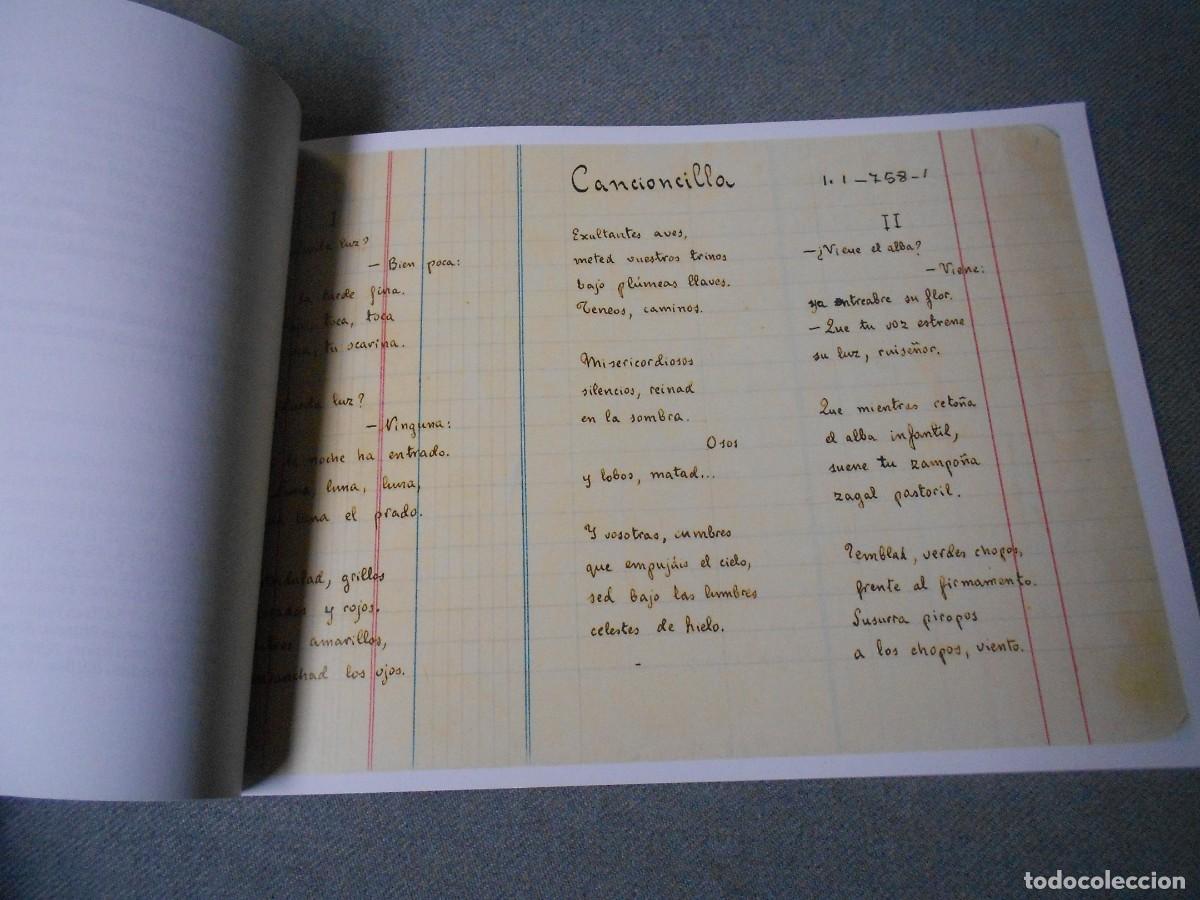 Cancioncilla
1.1-758-1
I
luz?
— Bien poca:
la tarde fina.
toca, toca
tu ocarina.
queda luz?
— Ninguna:
noche ha entrado.
Luna, luna, luna,
luna el prado.
grillos
y rojos.
amarillos,
los ojos.
Exultantes aves,
meted vuestros trinos
bajo plúmeas llaves.
Teneos, caminos.
Misericordiosos
silencios, reinad
en la sombra.
Osos
y lobos, matad...
Y vosotras, cumbres
que empujáis el cielo,
sed bajo las lumbres
celestes de hielo.
-
II
— ¿Viene el alba?
— Viene:
ya entreabre su flor.
— Que tu voz estrene
su luz, ruiseñor.
Que mientras retoña
el alba infantil,
suene tu zampoña
zagal pastoril.
Temblad, verdes chopos,
frente al firmamento.
Susurra piropos
a los chopos, viento.
todocoleccion